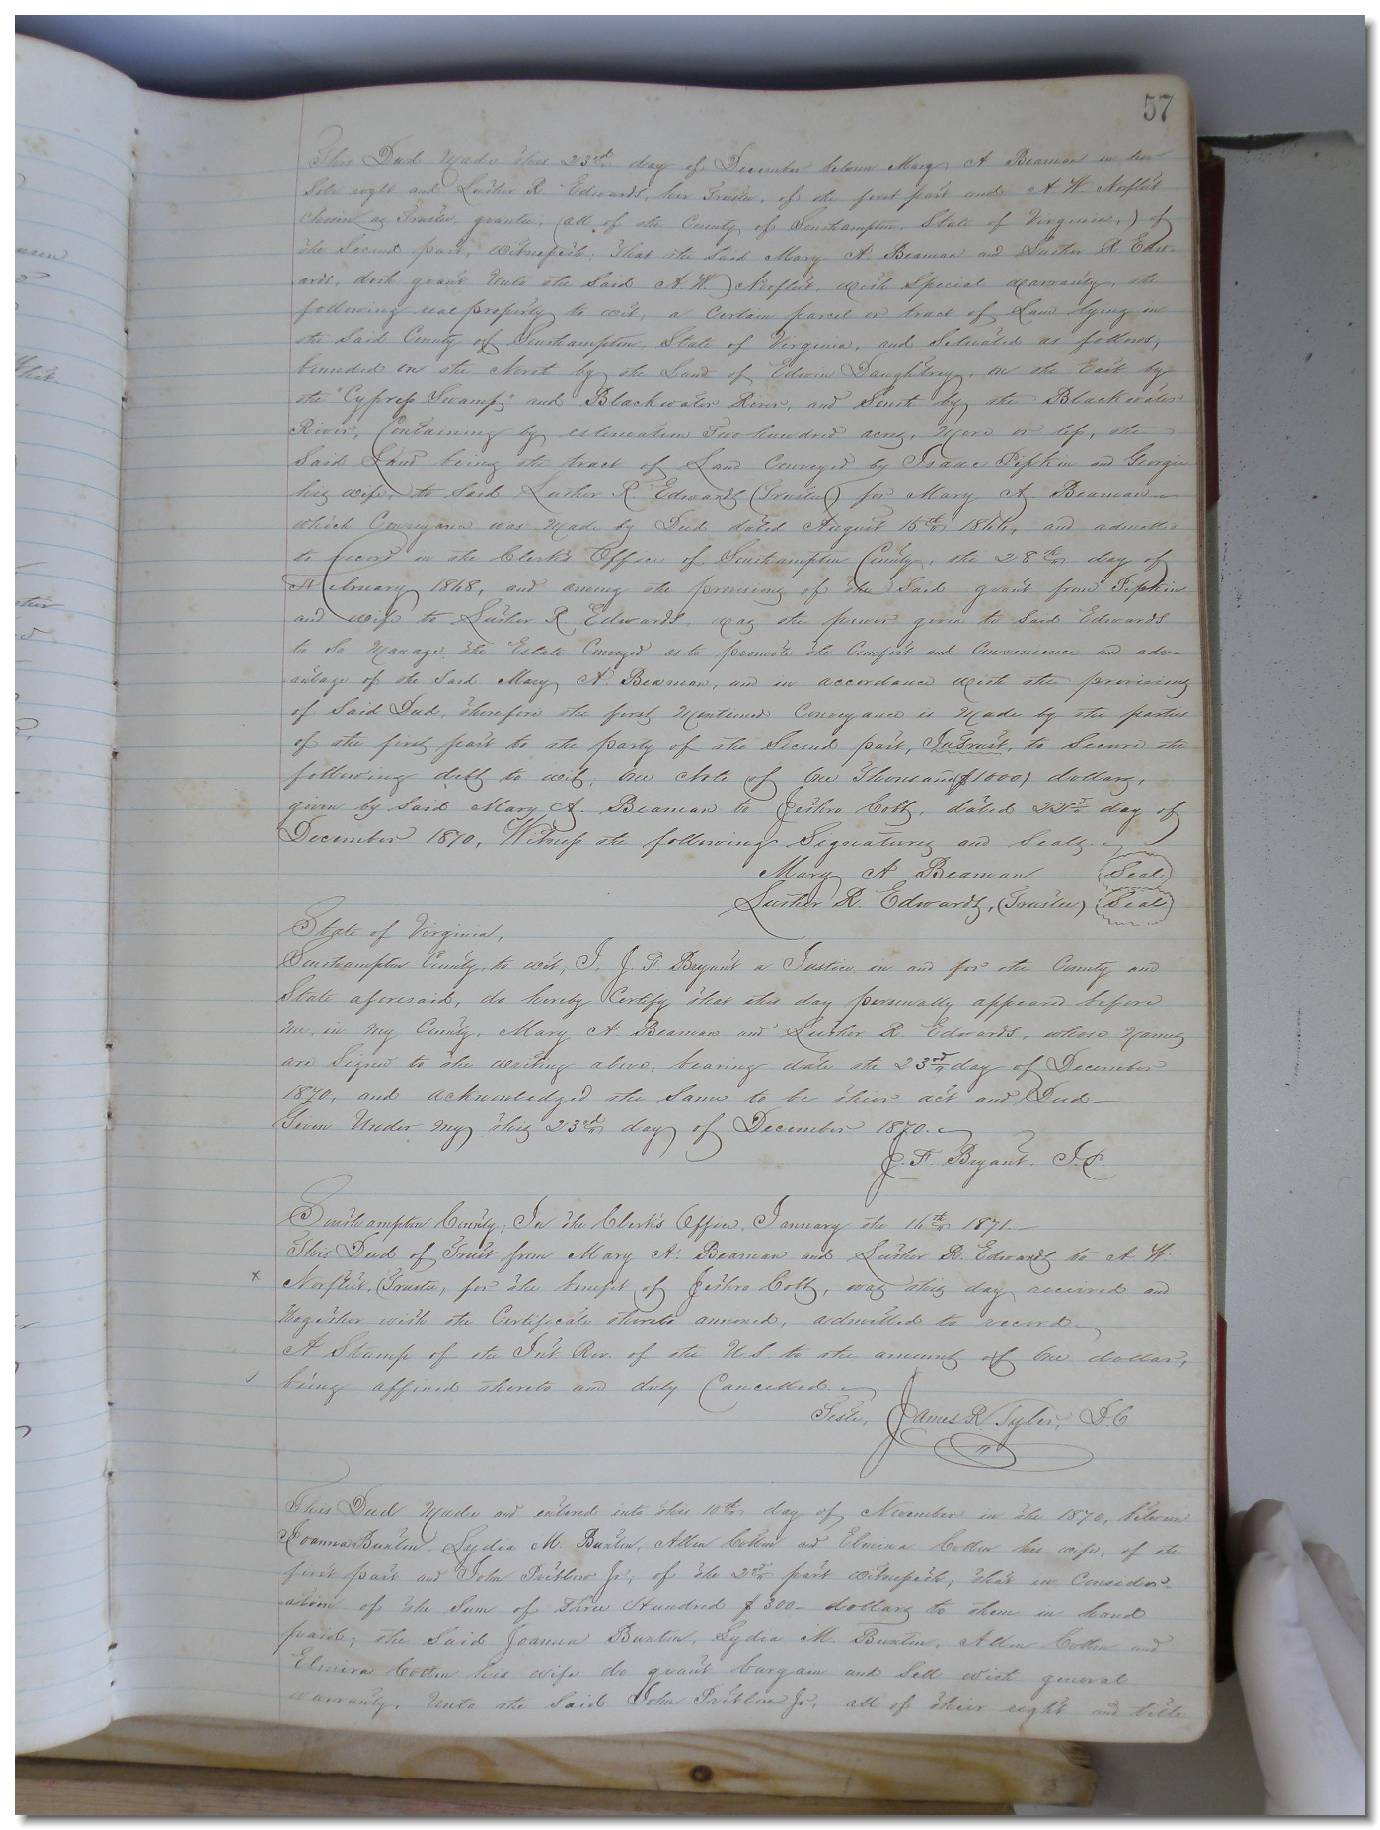 57
This Deed Made this 23rd day of December between Mary A Beaman in her
Sole right and Luther R Edwards, her Trustee, of the first part and A W. Norfleet
chosen as Trustee grantee, (all of the County of Southampton, State of Virginia,) of
the Second part, Witnesseth; That the Said Mary A. Beaman and Luther R Edw-
ards, doth grant Unto the Said A. W. Norfleet, with Special warranty, the
following real property to wit, a Certain parcel or tract of Land lying in
the Said County of Southampton, State of Virginia, and Situated as follows,
bounded on the North by the Land of Edwin Daughtrey, on the East by
the "Cypress Swamp" and Blackwater River, and South by the Blackwater
River, Containing by estimation Two hundred acres, More or less, the
Said Land being the tract of Land Conveyed by Isaac Pipkin and Georgie
his wife, to Said Luther R. Edwards (Trustee) for Mary A Beaman
which Conveyance was Made by Deed dated August 15th and admitted
to record in the Clerk's Office of Southampton County, the 28th day of
February 1868, and among the provisions of the Said grant from Pipkin
and wife to Luther R Edwards, was the power given to Said Edwards
to So Manage the Estate Conveyed as to promote the Comfort and Convenience and adv-
antage of the Said Mary A. Beaman, and in accordance with the provisions
of Said Deed, therefore the first Mentioned Conveyance is Made by the parties
of the first part to the party of the Second part, In Trust, to Secure the
following debt to wit; One Note of One Thousand ($1000) dollars,
given by Said Mary A. Beaman to Jethro Cobb, dated day of
December 1870, Witness the following Signatures and Seals.
Mary A Beaman (Seal)
Luther R. Edwards, (Trustee) (Seal)
State of Virginia,
Southampton County, to wit, I, J. F Bryant a Justice in and for the County and
State aforesaid, do hereby Certify that this day personally appeared before
me, in my County, Mary A. Beaman and Luther R. Edwards, whose Names
are Signed to the writing above, bearing date the 23rd day of December
1870, and acknowledged the Same to be their act and Deed—
Given Under My this 23rd day of December 1870.
J. F. Bryant. J.P.
Southampton County; In the Clerk's Office, January the 16th 1871.—
This Deed of Trust from Mary A. Beaman and Luther R. Edwards to A W.
x Norfleet, Trustee, for the benefit of Jethro Cobb, was this day received and
together with the Certificate thereto annexed, admitted to record.
A Stamp of the Int Rev. of the U.S. to the amount of One dollar,
being affixed thereto and duly Cancelled.
Teste, James R Tyler, D.C
This Deed Made and entered into this 10th day of November in the 1870, between
Joanna Buxton, Lydia M. Buxton, Allen Cotten and Elmira Cotten his wife, of the
first part and John Pretlow Jr, of the 2nd part witnesseth, that in Consider-
ation of the Sum of Three Hundred $300— dollars to them in hand
paid; the Said Joanna Buxton, Lydia M. Buxton, Allen Cotten and
Elmira Cotten his wife do grant bargain and Sell with general
warranty, Unto the Said John Pretlow Jr, all of their right and title